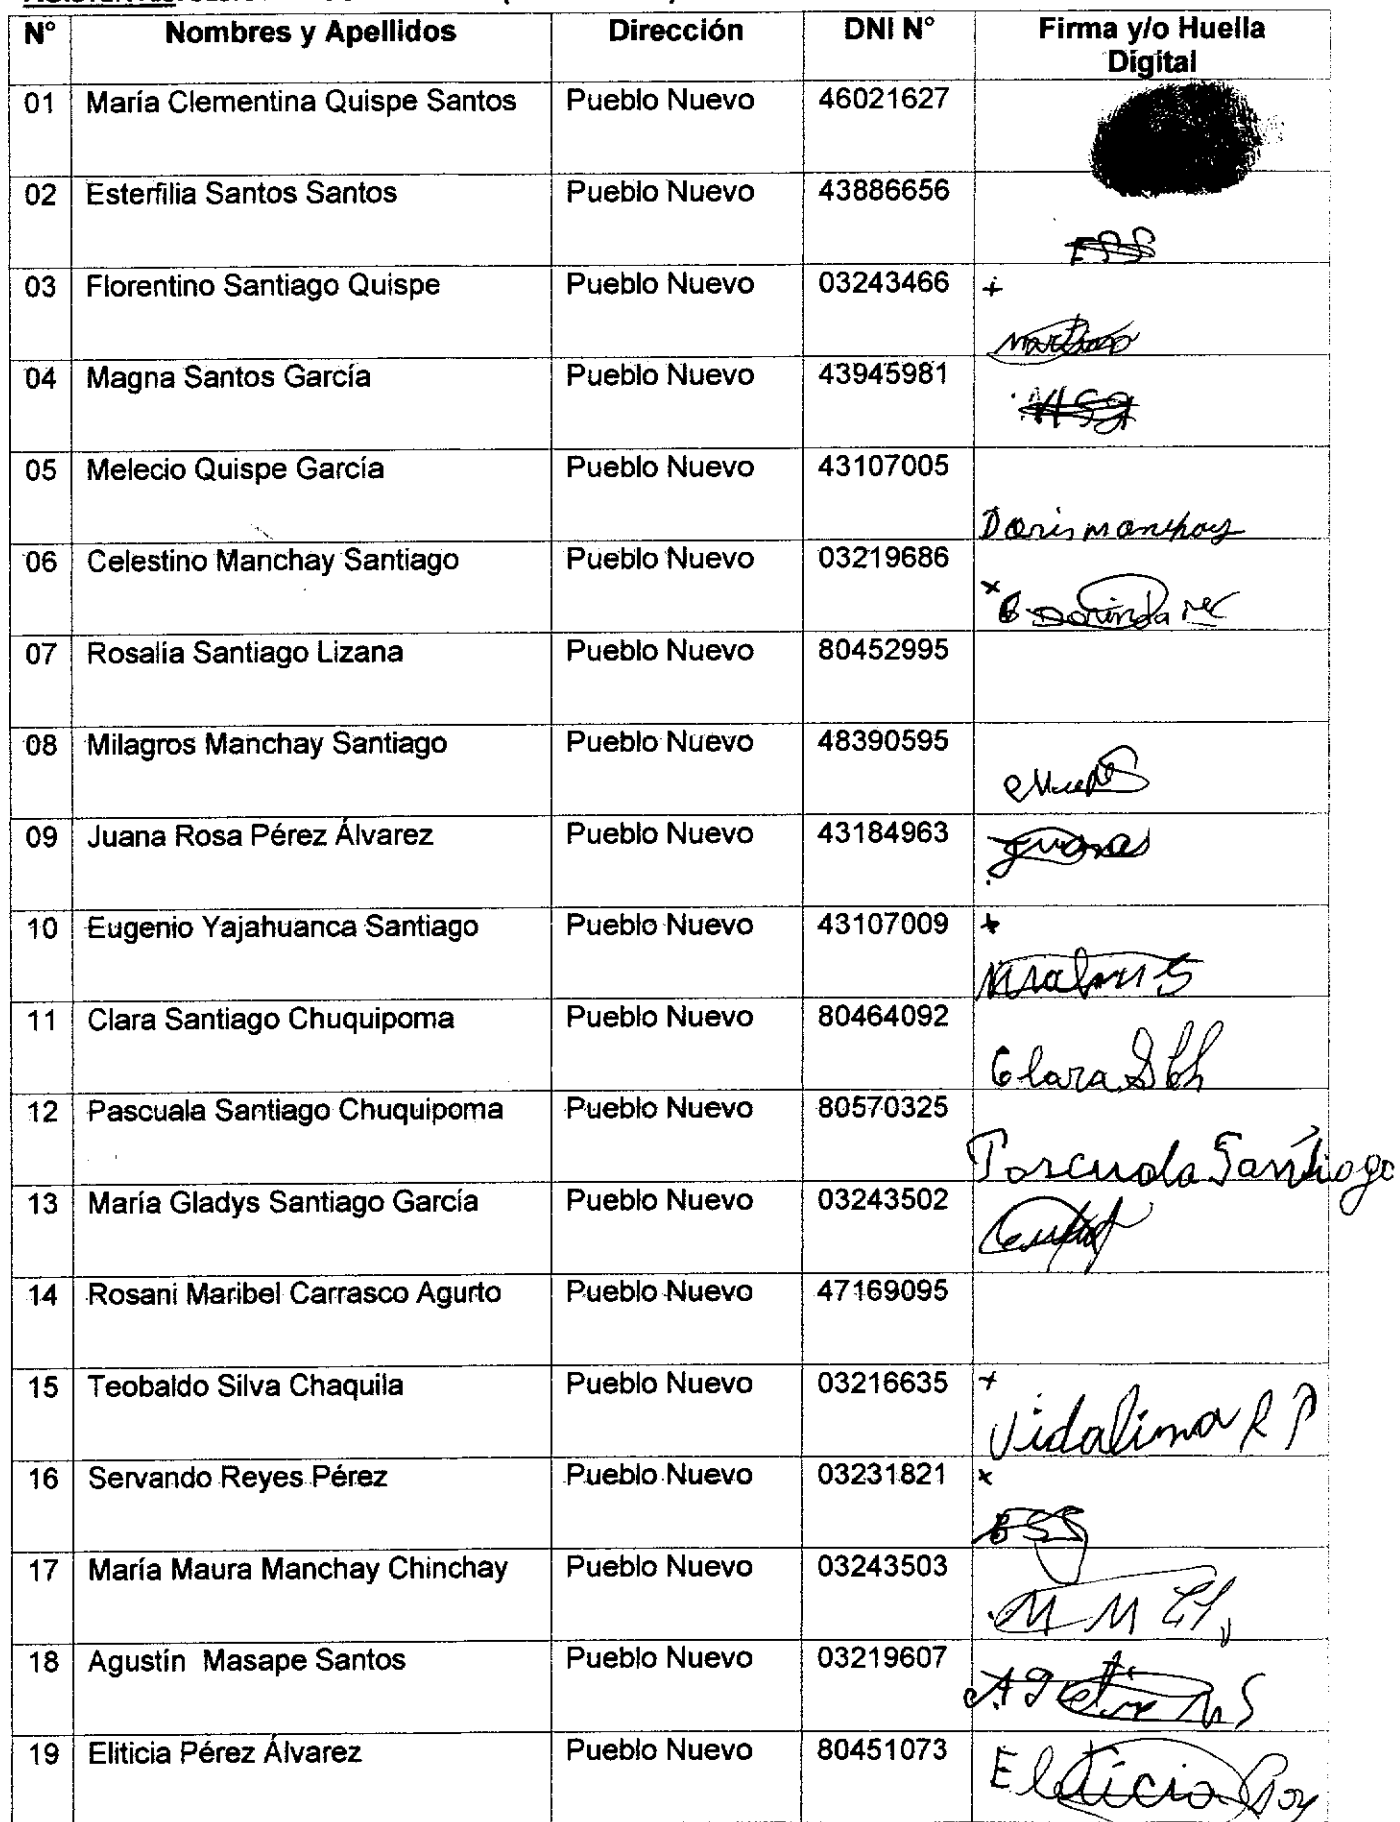 N° Nombres y Apellidos Dirección DNI N° Firma y/o Huella Digital
01 María Clementina Quispe Santos Pueblo Nuevo 46021627
02 Esterfilia Santos Santos Pueblo Nuevo 43886656 ESS
03 Florentino Santiago Quispe Pueblo Nuevo 03243466 +
04 Magna Santos García Pueblo Nuevo 43945981 MSG
05 Melecio Quispe García Pueblo Nuevo 43107005 Doris manchay
06 Celestino Manchay Santiago Pueblo Nuevo 03219686 x Dorinda
07 Rosalía Santiago Lizana Pueblo Nuevo 80452995
08 Milagros Manchay Santiago Pueblo Nuevo 48390595
09 Juana Rosa Pérez Álvarez Pueblo Nuevo 43184963 Juana
10 Eugenio Yajahuanca Santiago Pueblo Nuevo 43107009 +
11 Clara Santiago Chuquipoma Pueblo Nuevo 80464092 Clara SCh
12 Pascuala Santiago Chuquipoma Pueblo Nuevo 80570325 Pascuala Santiago
13 María Gladys Santiago García Pueblo Nuevo 03243502
14 Rosani Maribel Carrasco Agurto Pueblo Nuevo 47169095
15 Teobaldo Silva Chaquila Pueblo Nuevo 03216635 + Vidalima R P
16 Servando Reyes Pérez Pueblo Nuevo 03231821 x ESS
17 María Maura Manchay Chinchay Pueblo Nuevo 03243503 M M Ch
18 Agustín Masape Santos Pueblo Nuevo 03219607
19 Eliticia Pérez Álvarez Pueblo Nuevo 80451073 Eliticia